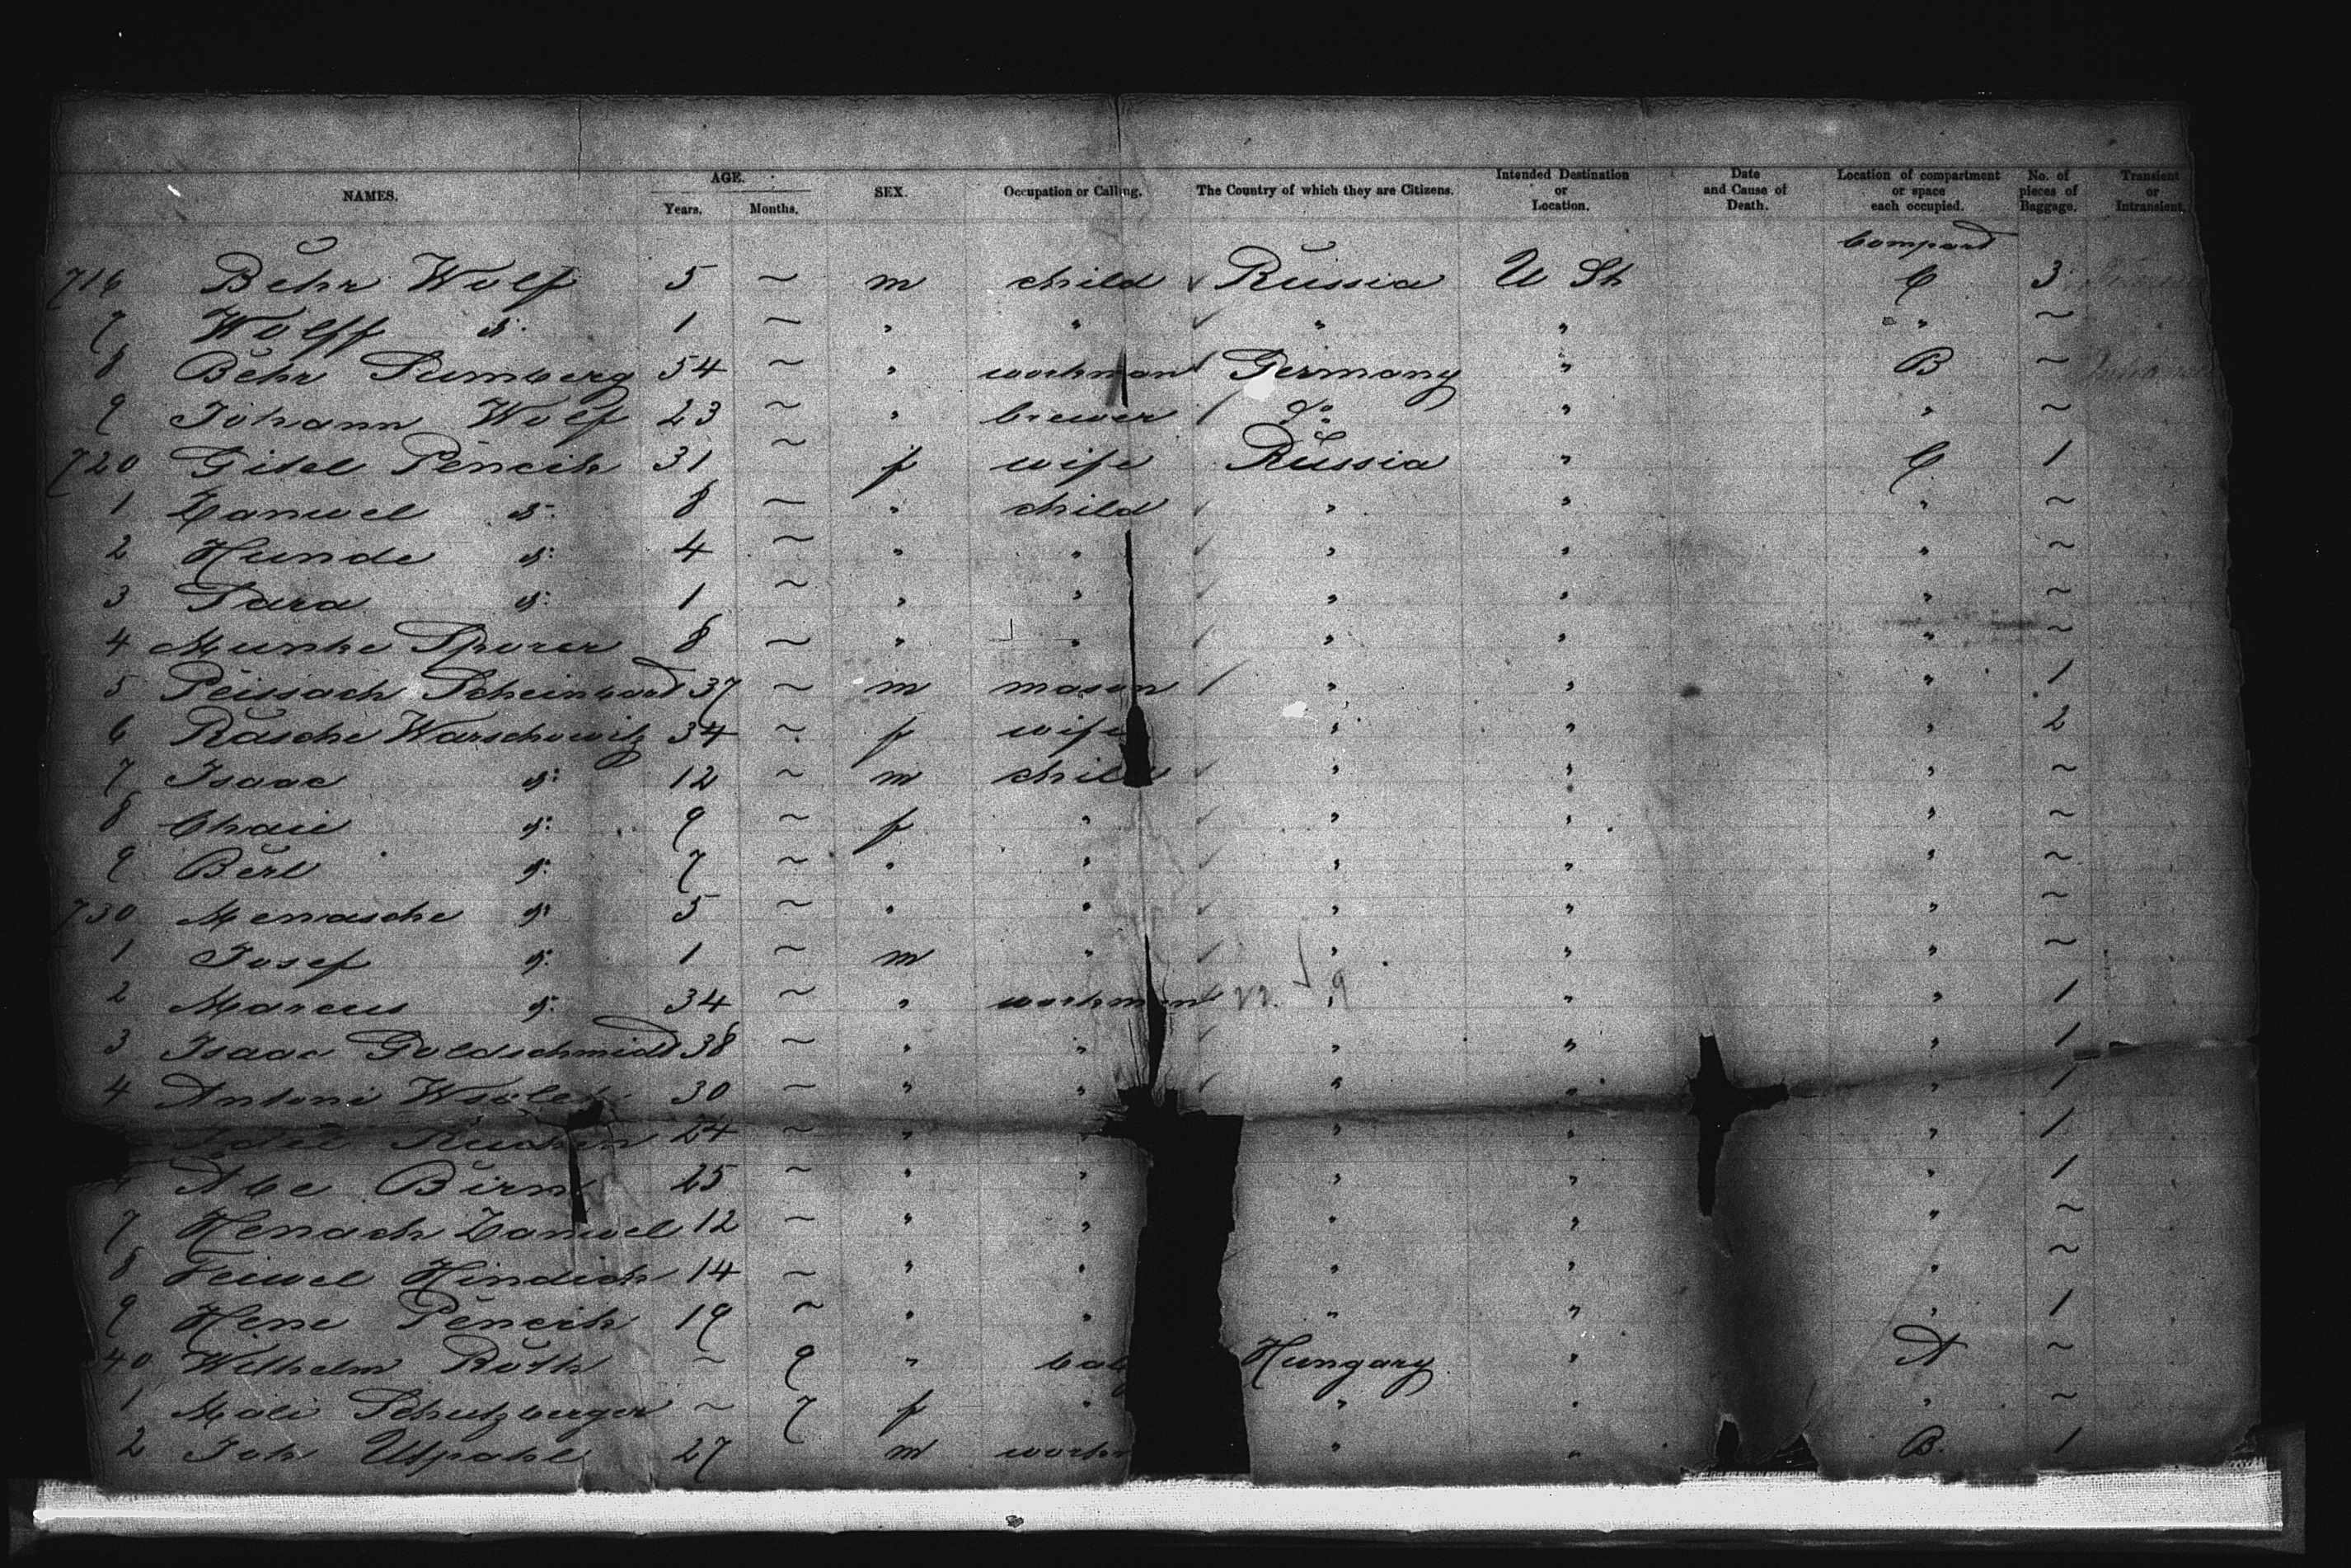 NAMES. AGE. Years. Months. SEX. Occupation or Calling. The Country of which they are Citizens. Intended Destination or Location. Date and Cause of Death. Location of compartment or space each occupied. No. of pieces of Baggage. Transient or Intransient.
Compard
716 Behr Wolf 5 ~ m child Russia U St C 3
7 Wolff d: 1 ~ " " " " " ~
8 Behr Sumberg 54 ~ " workman Germany " B ~
9 Johann Wolf 23 ~ " brewer Do " " ~
720 Gitel Pencik 31 ~ f wife Russia " C 1
1 Zanwel d: 8 ~ " child " " " ~
2 Hunde d: 4 ~ " " " " " ~
3 Sara d: 1 ~ " " " " " ~
4 Munke Sporer 8 ~ " " " " " ~
5 Peissach 37 ~ m mason " " " 1
6 Rasche Warschowitz 34 ~ f wife " " " 2
7 Isaac d: 12 ~ m child " " " ~
8 Chaie d: 9 ~ f " " " " ~
9 Berl d: 7 ~ " " " " " ~
730 Menasche d: 5 ~ " " " " " ~
1 Josef d: 1 ~ m " " " " ~
2 Marcus d: 34 ~ " workman " " " 1
3 Isaac Goldschmidt 38 ~ " " " " " 1
4 Antoni 30 ~ " " " " " 1
24 ~ " " " " 1
Abe Birn 25 ~ " " " " " 1
7 Henach Zanwel 12 ~ " " " " " ~
8 Feiwel Hindich 14 ~ " " " " " ~
9 Hene Pencik 19 ~ " " " " " 1
40 Wilhelm Roth ~ 9 " Hungary " A ~
1 Mali Schutzberger ~ 7 f " " " " ~
2 Joh Uspahl 27 m " " B. 1